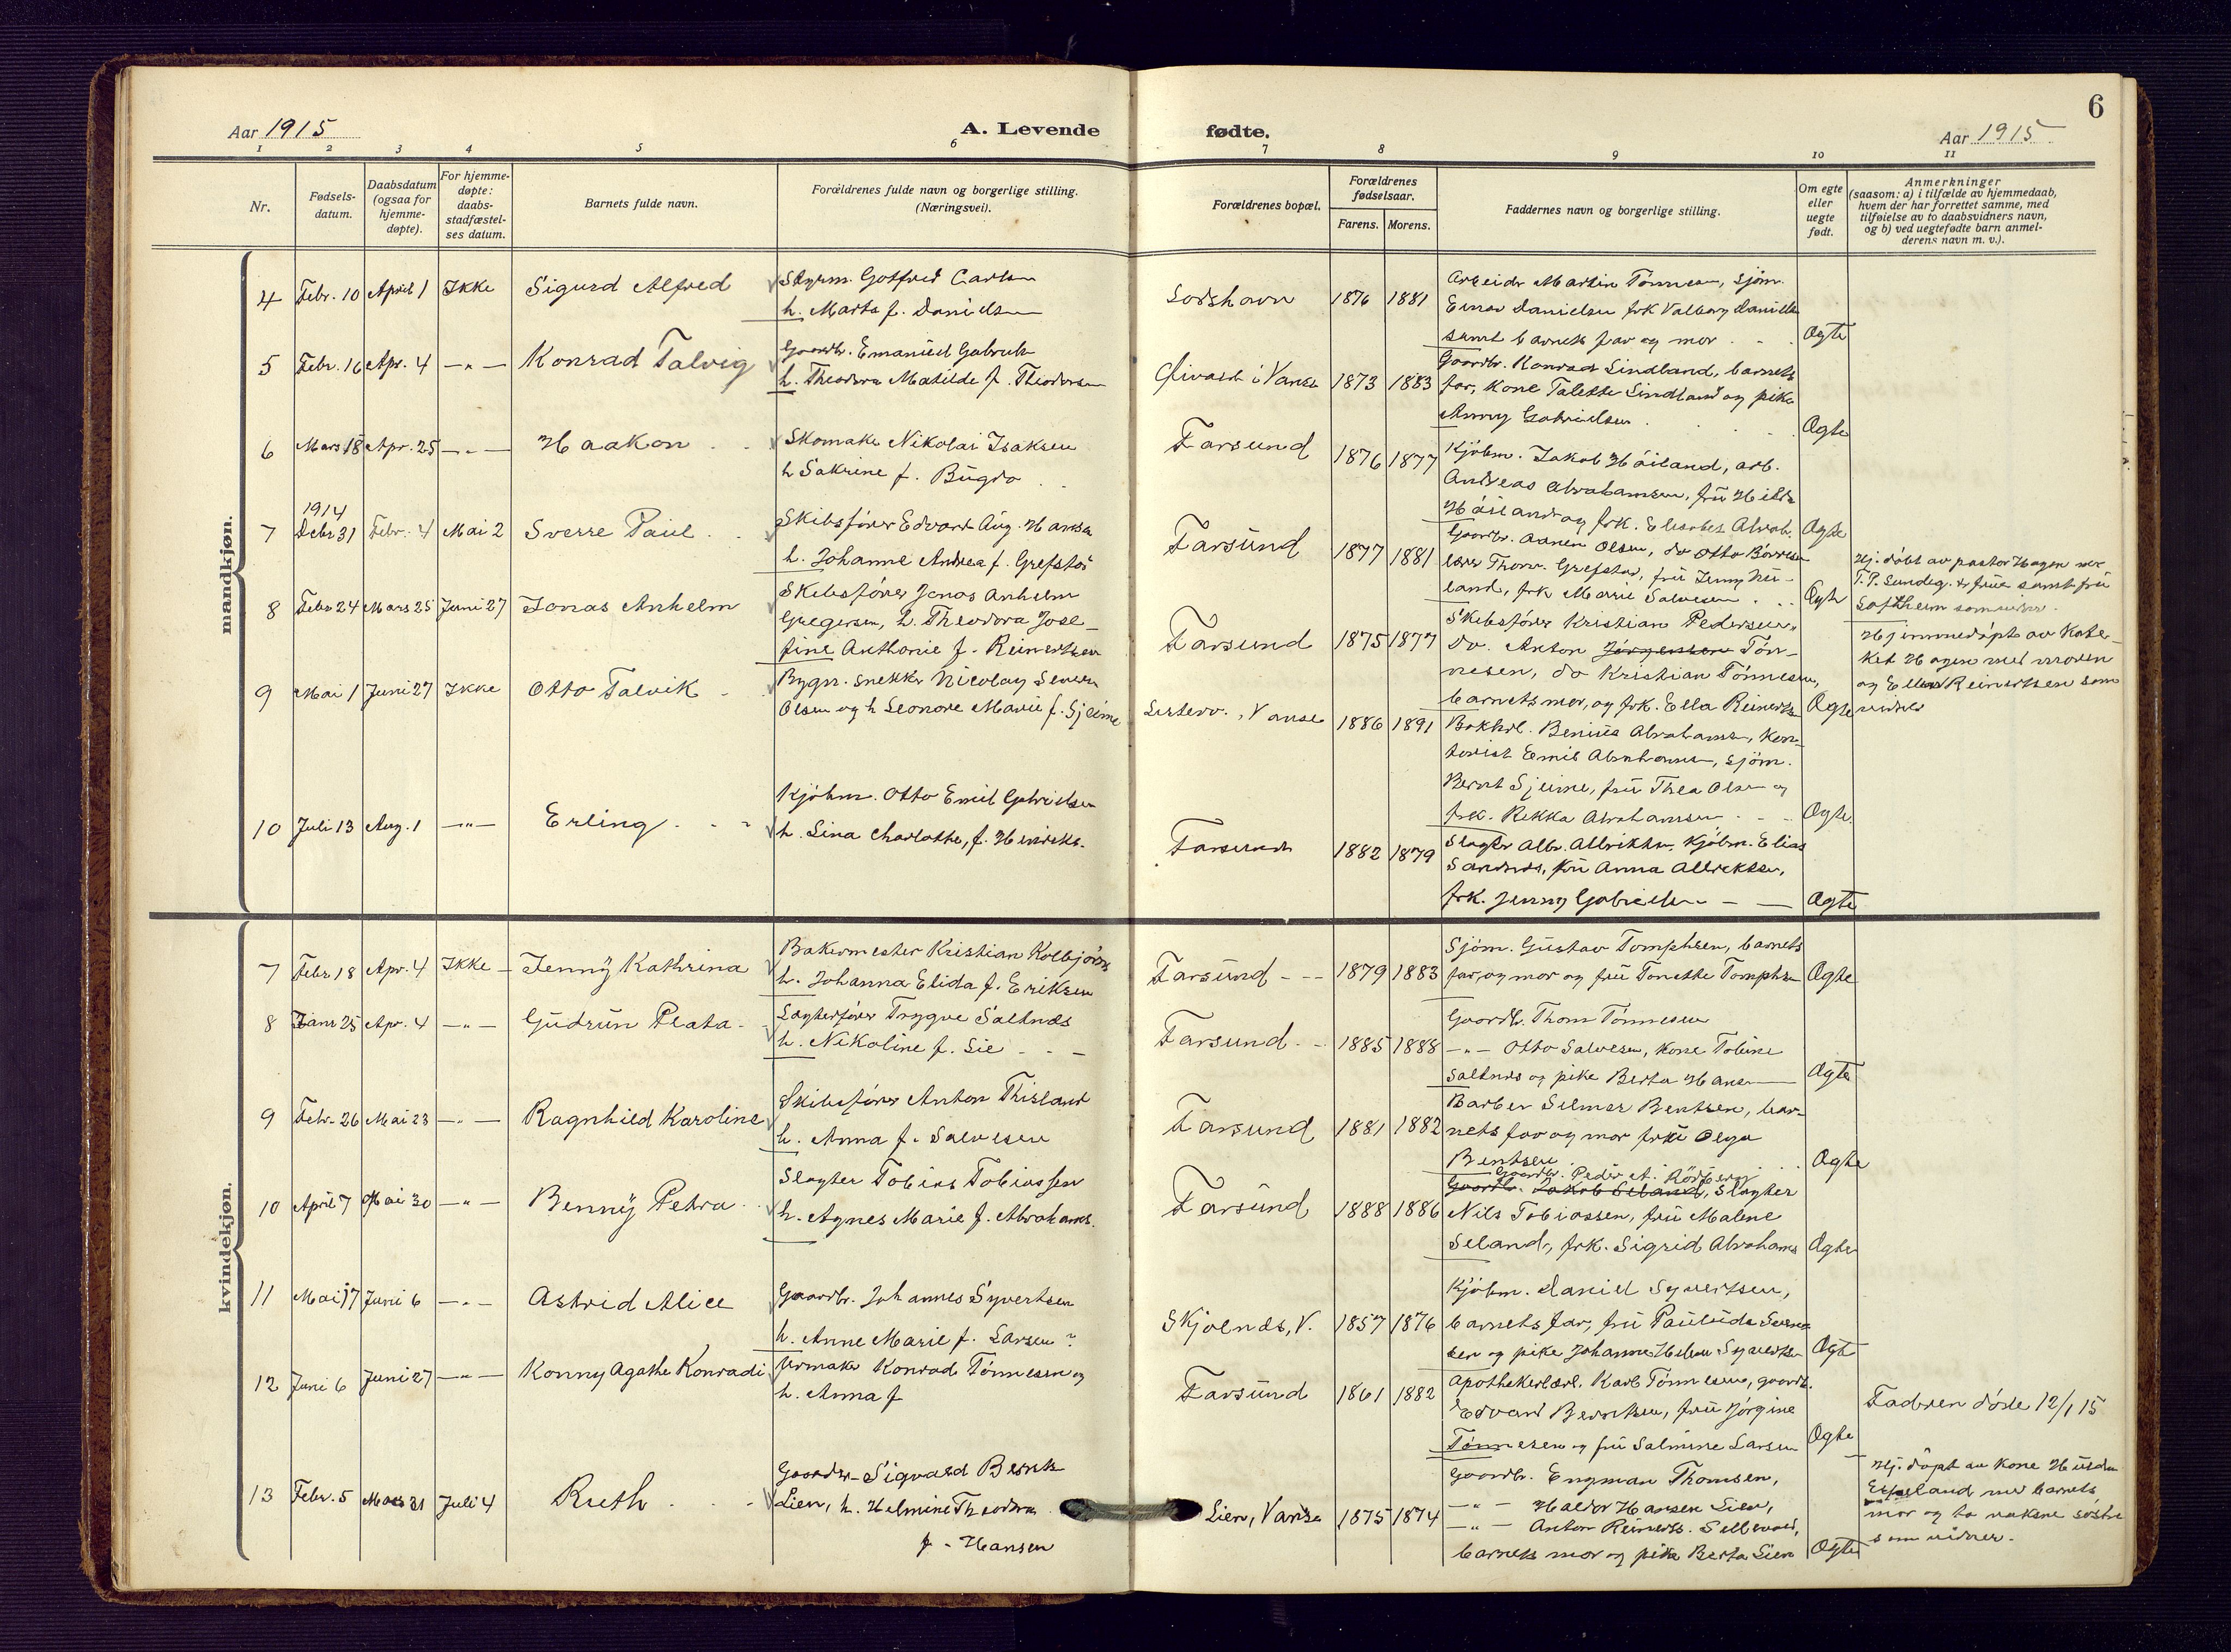 6
Aar 1915
A. Levende
fødte.
Aar 1915
1 2 3 4 5 6 7 8 9 10 11
Nr.
Fødsels-
datum.
Daabsdatum
(ogsaa for
hjemme-
døpte).
For hjemme-
døpte:
daabs-
stadfæstel-
ses datum.
Barnets fulde navn.
Forældrenes fulde navn og borgerlige stilling.
(Næringsvei).
Forældrenes bopæl.
Forældrenes
fødselsaar.
Farens. Morens.
Faddernes navn og borgerlige stilling.
Om egte
eller
uegte
født.
Anmerkninger
(saasom: a) i tilfælde av hjemmedaab,
hvem der har forrettet samme, med
tilføielse av to daabsvidners navn,
og b) ved uegtefødte barn anmel-
derens navn m. v.).
mandkjøn.
4 Febr. 10 April 1 Ikke Sigurd Alfred
Styrm. Gotfred Carlsen
h. Marta f. Danielsen
Loshavn 1876 1881
Arbeider Martin Tønnesen, sjøm.
Einar Danielsen frk Valborg Daniels
samt barnets far og mor
Ægte
5 Febr. 16 Apr. 4 -"- Konrad Talvig
Gaardbr. Emanuel Gabriels
h. Theodora Matilde f. Theodorsen
i Vanse 1873 1883
Gaardbr. Konrad Lindland, barnets
far, kone Talette Lindland og pike
Anny Gabrielsen
Ægte
6 Mars 18 Apr. 25 -"- Haakon
Skomaker Nikolai Isaksen
h Sakrine f. Bugdo
Farsund 1876 1877
Kjøbm. Jakob Høiland, arb.
Andreas Abrahamsen, frü Hilda
Høiland og frk. Elisabet Abrah.
Ægte
7 1914
Debr 31 Febr. 4 Mai 2 Sverre Paul
Skibsfører Edvard Aug. Hansen
h. Johanne Andrea f. Grefstad
Farsund 1877 1881
Gaardbr. Aanen Olsen, do Otto Børresen
lærer Thorv. Grefstad, frü Jenny
land, frk Marie Salvesen
Ægte
Hj. døbt av pastor Hagen med
T. P. Sundeg. & frue samt frü
som vidner.
8 Febr 24 Mars 25 Juni 27 Jonas Anhelm
Skibsfører Jonas Anhelm
Gregersen, h. Theodora Jose-
fine Anthonie f. Reinertsen
Farsund 1875 1877
Skibsfører Kristian Pedersen,
do. Anton Jørgensen Tøn-
nesen, do Kristian Tønnesen,
barnets mor, og frk. Ella Reinerts
Ægte
Hjemmedøpt av Kate-
ket Hagen med moren
og Ella Reinertsen som
vidner
9 Mai 1 Juni 27 Ikke Otto Talvik
Bygn. snekker Nicolay Severin
Olsen og h Leonore Marie f. Sjeime
Listerv., Vanse 1886 1891
Bokhol. Benius Abrahamsen, kon-
torist Emil Abrahamsen, sjøm.
Bernt Sjeime, frü Thea Olsen og
frk. Rekka Abrahamsen
Ægte.
10 Juli 13 Aug. 1 -"- Erling
Kjøbm. Otto Emil Gabrielsen
h. Lina Charlotte, f. Henriks.
Farsund 1882 1879
Slagter Albr. Albriktsen, Kjøbm. Elias
Sandnes, frü Anna Albrektsen,
frk. Jenny Gabrielsen
Ægte
kvindekjøn.
7 Febr 18 Apr. 4 Ikke Jenny Kathrina
Bakermester Kristian Kolbjørns
h. Johanna Elida f. Eriksen
Farsund 1879 1883
Sjøm. Gustav Tomphsen, barnets
far, og mor og frü Tonette Tomphsen
Ægte
8 Janr 25 Apr. 4 -"- Gudrun Beata
Trygve Saltnæs
h. Nikoline f. Lie
Farsund 1885 1888
Gaardb. Thom Tønnesen
-"- Otto Salvesen, kone Toline
Saltnes og pike Berta Hansen
Ægte
9 Febr. 26 Mai 23 -"- Ragnhild Karoline
Skibsfører Anton Thisland
h. Anna f. Salvesen
Farsund 1881 1882
Barber Selmer Bentsen, bar-
nets far og mor frü Olga
Bentsen
Ægte
10 April 7 Mai 30 -"- Benny Petra
Slagter Tobias Tobiassen
h. Agnes Marie f. Abrahams.
Farsund 1888 1886
Gaardbr. Peder A. Rødberg
Gaardb. Jakob Seland, Slagter
Nils Tobiassen, frü Malene
Seland, frk. Sigrid Abrahams
Ægte
11 Mai 17 Juni 6 -"- Astrid Alice
Gaardbr. Johannes Syvertsen
h. Anne Marie f. Larsen ?
Skjolnes, V. 1857 1876
Kjøbm. Daniel Syvertsen,
barnets far, frü Paulüda
sen og pike Johanne Helene Syvertsen
Ægte
12 Juni 6 Juni 27 -"- Konny Agathe Konradi
Urmaker Konrad Tønnesen og
h. Anna f
Farsund 1861 1882
Apothekerlærl. Karl Tønnesen, gaardb.
Edvard Berntsen, frü Jørgine
Tønnesen og frü Salmine Larsen
Ægte
Faderen døde 12/1 15
13 Febr. 5 Mars 31 Juli 4 Ruth
Gaardbr. Sigvald Bernts
Lien, h. Helmine Theodora
f. Hansen
Lien, Vanse 1875 1874
Gaardbr. Engman Thomsen,
-"- Haldor Hansen Lien,
-"- Anton Reinerts.
barnets mor og pike Berta Lien
Ægte
Hj. døpt av kone Hulda
med barnets
mor og to voksne søstre
som vidner.